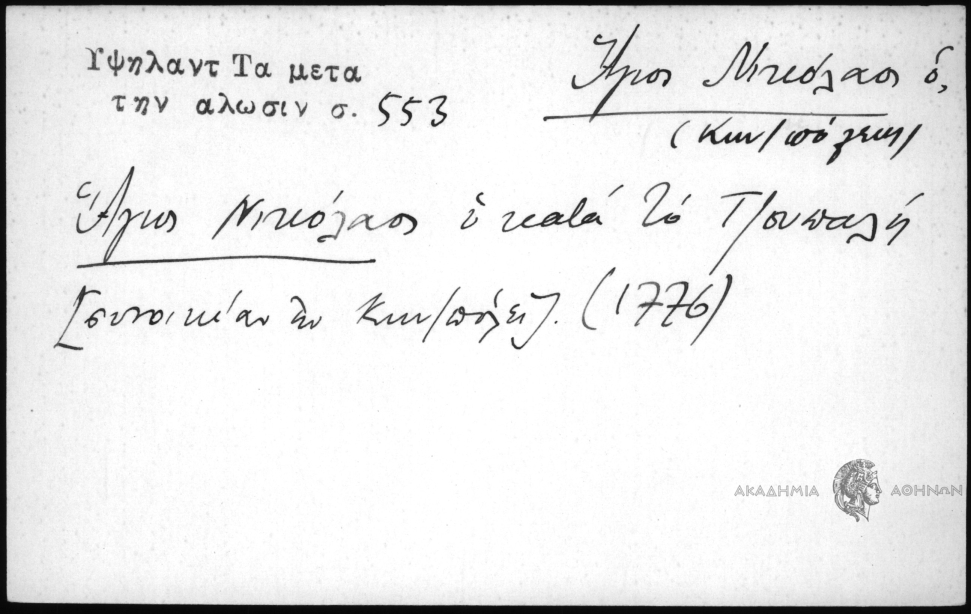 Υψηλαντ Τα μετα
την αλωσιν σ. 553
Ἅγιος Νικόλαος ὁ,
(Κων/πόλεως)
Ἅγιος Νικόλαος ὁ κατὰ τὸ Τζουπαλῆ
[συνοικίαν ἐν Κων/πόλει]. (1776)
ΑΚΑΔΗΜΙΑ ΑΘΗΝΩΝ